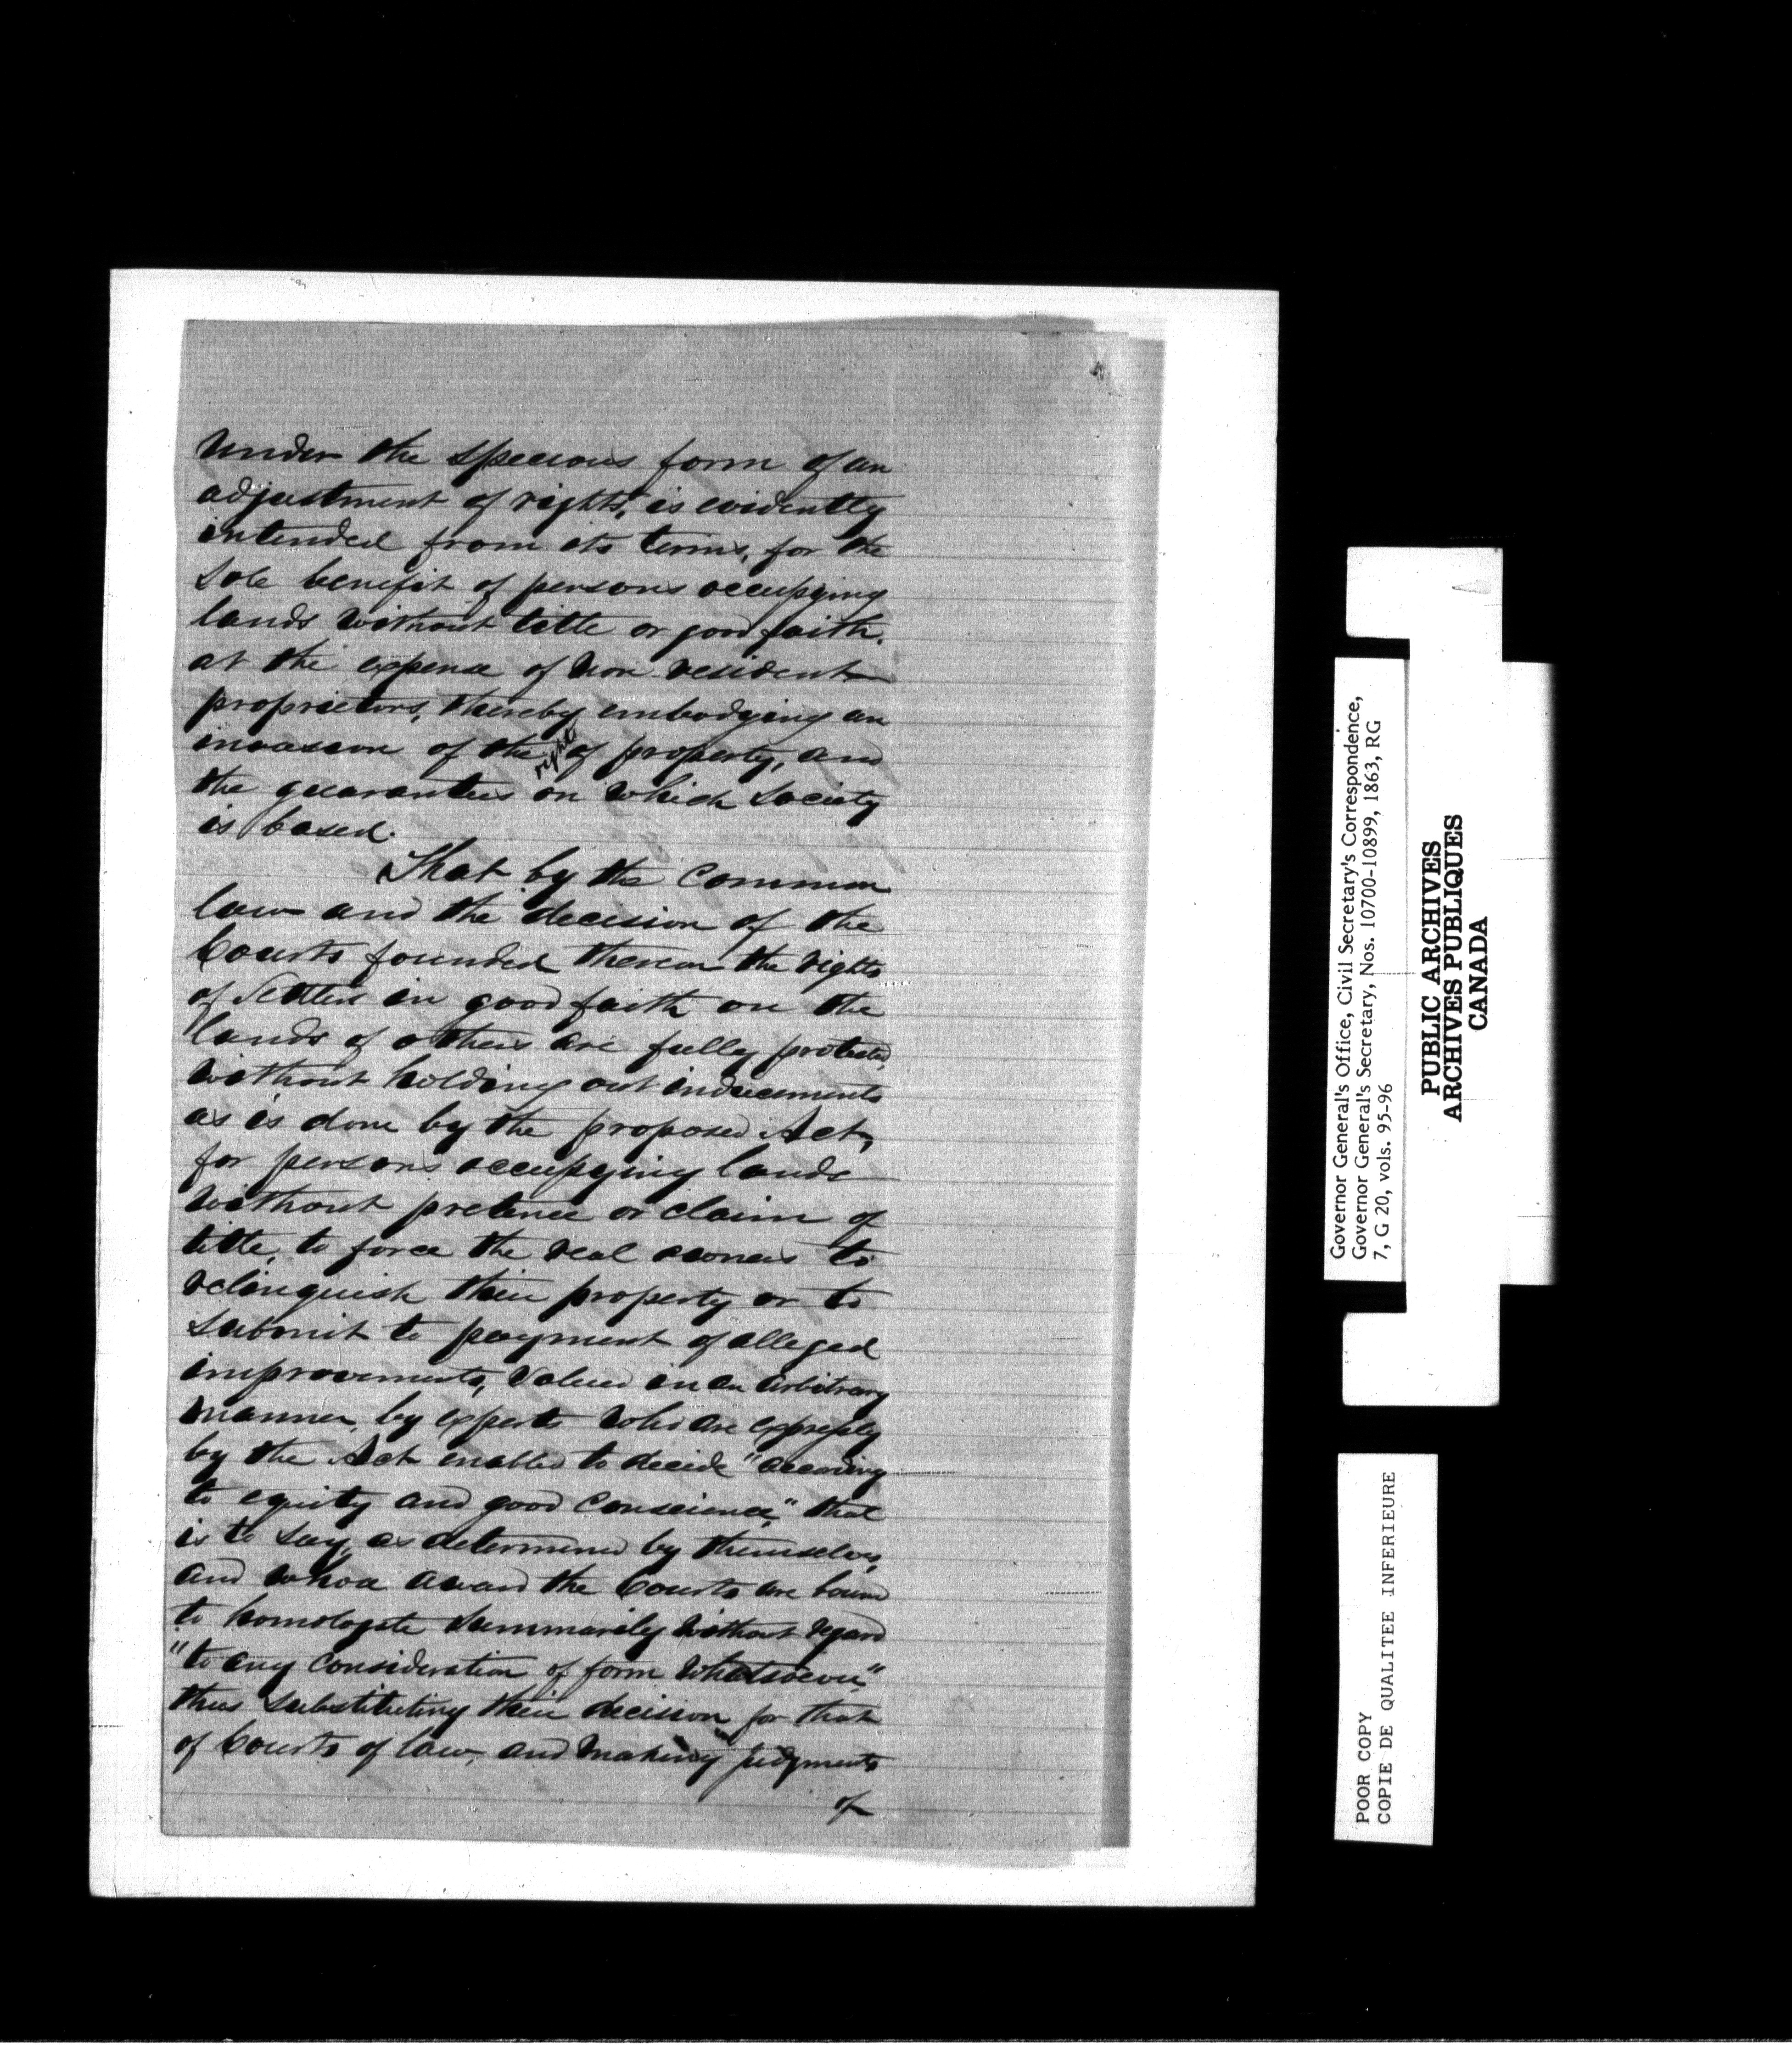 under the specious form of an
adjustment of rights, is evidently
intended from its terms, for the
sole benefit of persons occupying
lands without title or good faith.
at the expense of non resident
proprietors, thereby embodying an
invasion of the rights of property, and
the guarantees on which society
is based.
That by the common
law and the decision of the
Courts founded thereon the rights
of Settlers in good faith on the
lands of others are fully protected,
without holding out inducements
as is done by the proposed Act,
for persons occupying lands
without pretence or claim of
title, to force the real owners to
relinquish their property or to
submit to payment of alleged
improvements, valued in an arbitrary
manner, by experts who are expressly
by the Act enabled to decide "according
to equity and good conscience," that
is to say, as determined by themselves,
and whose award the Courts are bound
to homologate summarily without regard
"to any consideration of form whatsoever"
thus substituting their decision for that
of Courts of law, and making judgments
of
Governor General's Office, Civil Secretary's Correspondence,
Governor General's Secretary, Nos. 10700-10899, 1863, RG
7, G 20, vols. 95-96
PUBLIC ARCHIVES
ARCHIVES PUBLIQUES
CANADA
POOR COPY
COPIE DE QUALITEE INFERIEURE